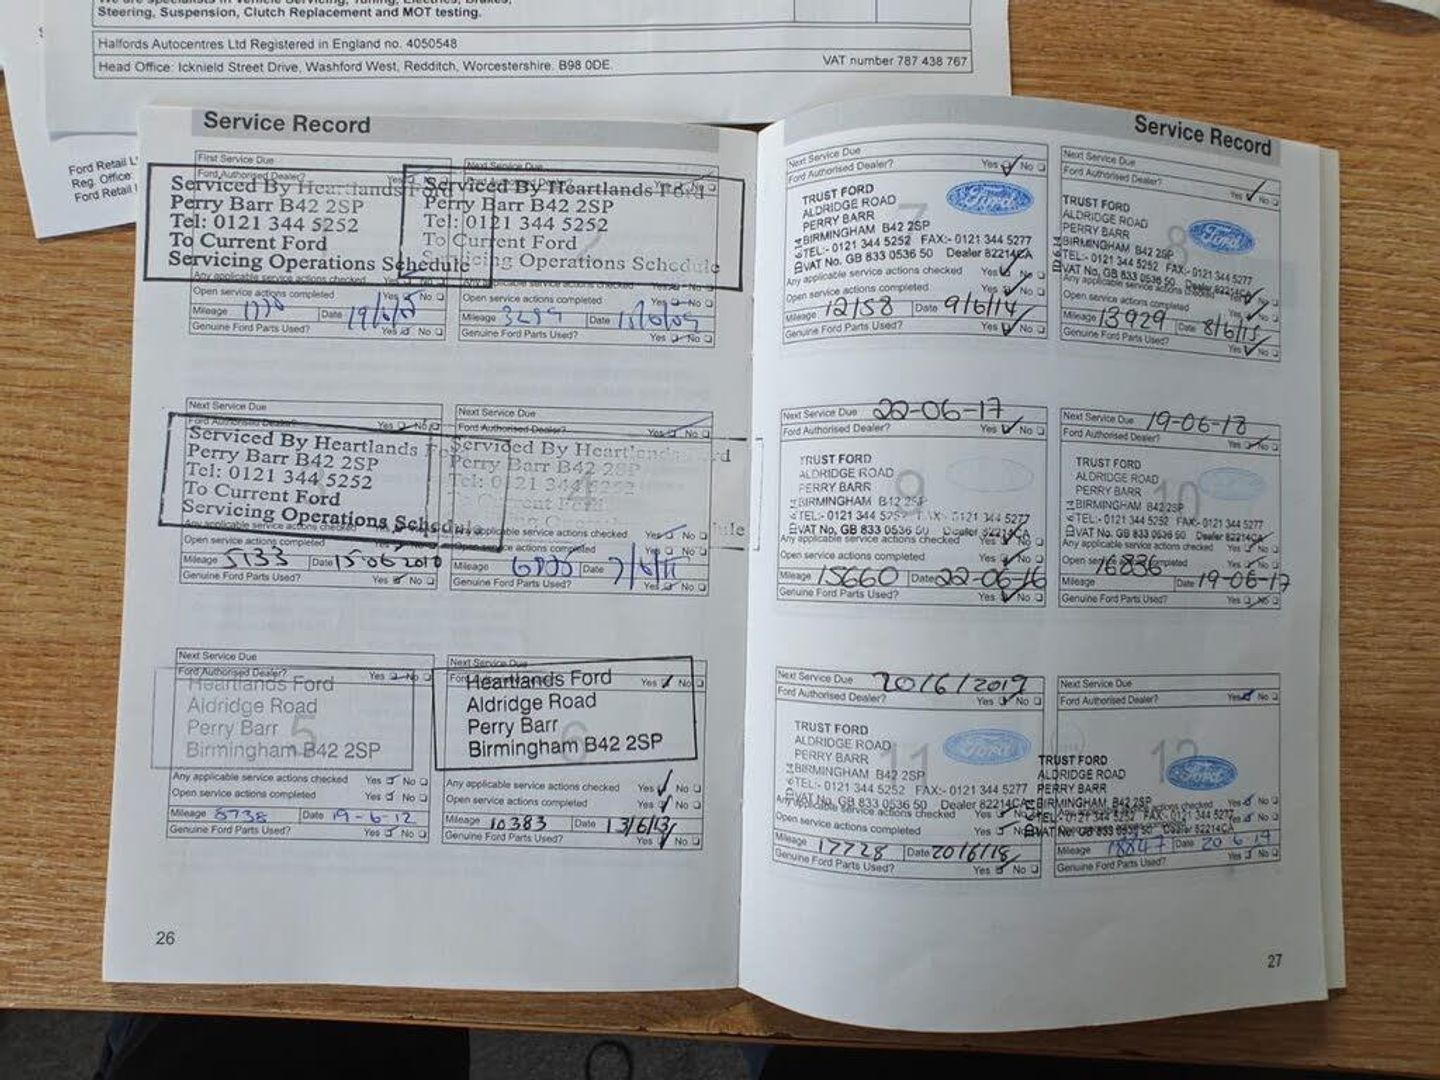 Steering, Suspension, Clutch Replacement and MOT testing.
Halfords Autocentres Ltd Registered in England no. 4050548
Head Office: Icknield Street Drive, Washford West, Redditch, Worcestershire. B98 0DE.
VAT number 787 438 767
Ford Retail L
Reg. Office
Ford Retail
Service Record
First Service Due
Ford Authorised Dealer?
Serviced By Heartlands Ford
Perry Barr B42 2SP
Tel: 0121 344 5252
To Current Ford
Servicing Operations Schedule
Any applicable service actions checked
Open service actions completed Yes No
Mileage Date 19/6/
Genuine Ford Parts Used? Yes No
Next Service Due
Serviced By Heartlands Ford
Perry Barr B42 2SP
Tel: 0121 344 5252
To Current Ford
Servicing Operations Schedule
Open service actions completed Yes No
Mileage Date
Genuine Ford Parts Used? Yes No
Next Service Due
Ford Authorised Dealer? Yes No
Serviced By Heartlands
Perry Barr B42 2SP
Tel: 0121 344 5252
To Current Ford
Servicing Operations Schedule
Any applicable service actions checked
Open service actions completed
Mileage 5133 Date 15-06-2010
Genuine Ford Parts Used? Yes No
Next Service Due
Ford Authorised Dealer? Yes No
Serviced By Heartlands Ford
Perry Barr B42 2SP
Tel: 0121 344 5252
To Current Ford
4
Any applicable service actions checked Yes No
Open service actions completed Yes No
Mileage Date 7/6/11
Genuine Ford Parts Used? Yes No
Next Service Due
Ford Authorised Dealer? Yes No
Heartlands Ford
Aldridge Road
Perry Barr
Birmingham B42 2SP
5
Any applicable service actions checked Yes No
Open service actions completed Yes No
Mileage 8738 Date 19-6-12
Genuine Ford Parts Used? Yes No
Next Service Due
Yes No
Heartlands Ford
Aldridge Road
Perry Barr
Birmingham B42 2SP
6
Any applicable service actions checked Yes No
Open service actions completed Yes No
Mileage 10383 Date 13/6/13
Genuine Ford Parts Used? Yes No
26
Service Record
Next Service Due
Ford Authorised Dealer? Yes No
TRUST FORD
ALDRIDGE ROAD
PERRY BARR
BIRMINGHAM B42 2SP
TEL:- 0121 344 5252 FAX:- 0121 344 5277
VAT No. GB 833 0536 50 Dealer 82214CA
Ford
7
Any applicable service actions checked Yes No
Open service actions completed Yes No
Mileage 12158 Date 9/6/14
Genuine Ford Parts Used? Yes No
Next Service Due
Ford Authorised Dealer? Yes No
TRUST FORD
ALDRIDGE ROAD
PERRY BARR
BIRMINGHAM B42 2SP
TEL:- 0121 344 5252 FAX:- 0121 344 5277
VAT No. GB 833 0536 50 Dealer 82214CA
Ford
8
Any applicable service actions checked Yes No
Open service actions completed Yes No
Mileage 13929 Date 8/6/15
Genuine Ford Parts Used? Yes No
Next Service Due 22-06-17
Ford Authorised Dealer? Yes No
TRUST FORD
ALDRIDGE ROAD
PERRY BARR
BIRMINGHAM B42 2SP
TEL:- 0121 344 5252 FAX:- 0121 344 5277
VAT No. GB 833 0536 50 Dealer 82214CA
9
Any applicable service actions checked Yes No
Open service actions completed Yes No
Mileage 15660 Date 22-06-16
Genuine Ford Parts Used? Yes No
Next Service Due 19-06-18
Ford Authorised Dealer? Yes No
TRUST FORD
ALDRIDGE ROAD
PERRY BARR
BIRMINGHAM B42 2SP
TEL:- 0121 344 5252 FAX:- 0121 344 5277
VAT No. GB 833 0536 50 Dealer 82214CA
10
Any applicable service actions checked Yes No
Open service actions completed Yes No
Mileage Date 19-06-17
Genuine Ford Parts Used? Yes No
Next Service Due 20/6/2019
Ford Authorised Dealer? Yes No
TRUST FORD
ALDRIDGE ROAD
PERRY BARR
BIRMINGHAM B42 2SP
TEL:- 0121 344 5252 FAX:- 0121 344 5277
VAT No. GB 833 0536 50 Dealer 82214CA
Ford
11
Open service actions completed Yes No
Mileage 17728 Date 20/6/18
Genuine Ford Parts Used? Yes No
Next Service Due
Ford Authorised Dealer? Yes No
TRUST FORD
ALDRIDGE ROAD
PERRY BARR
BIRMINGHAM B42 2SP
TEL:- 0121 344 5252 FAX:- 0121 344 5277
VAT No. GB 833 0536 50 Dealer 82214CA
Ford
12
Yes No
Yes No
Mileage 18847 Date 20 6 19
Genuine Ford Parts Used? Yes No
27